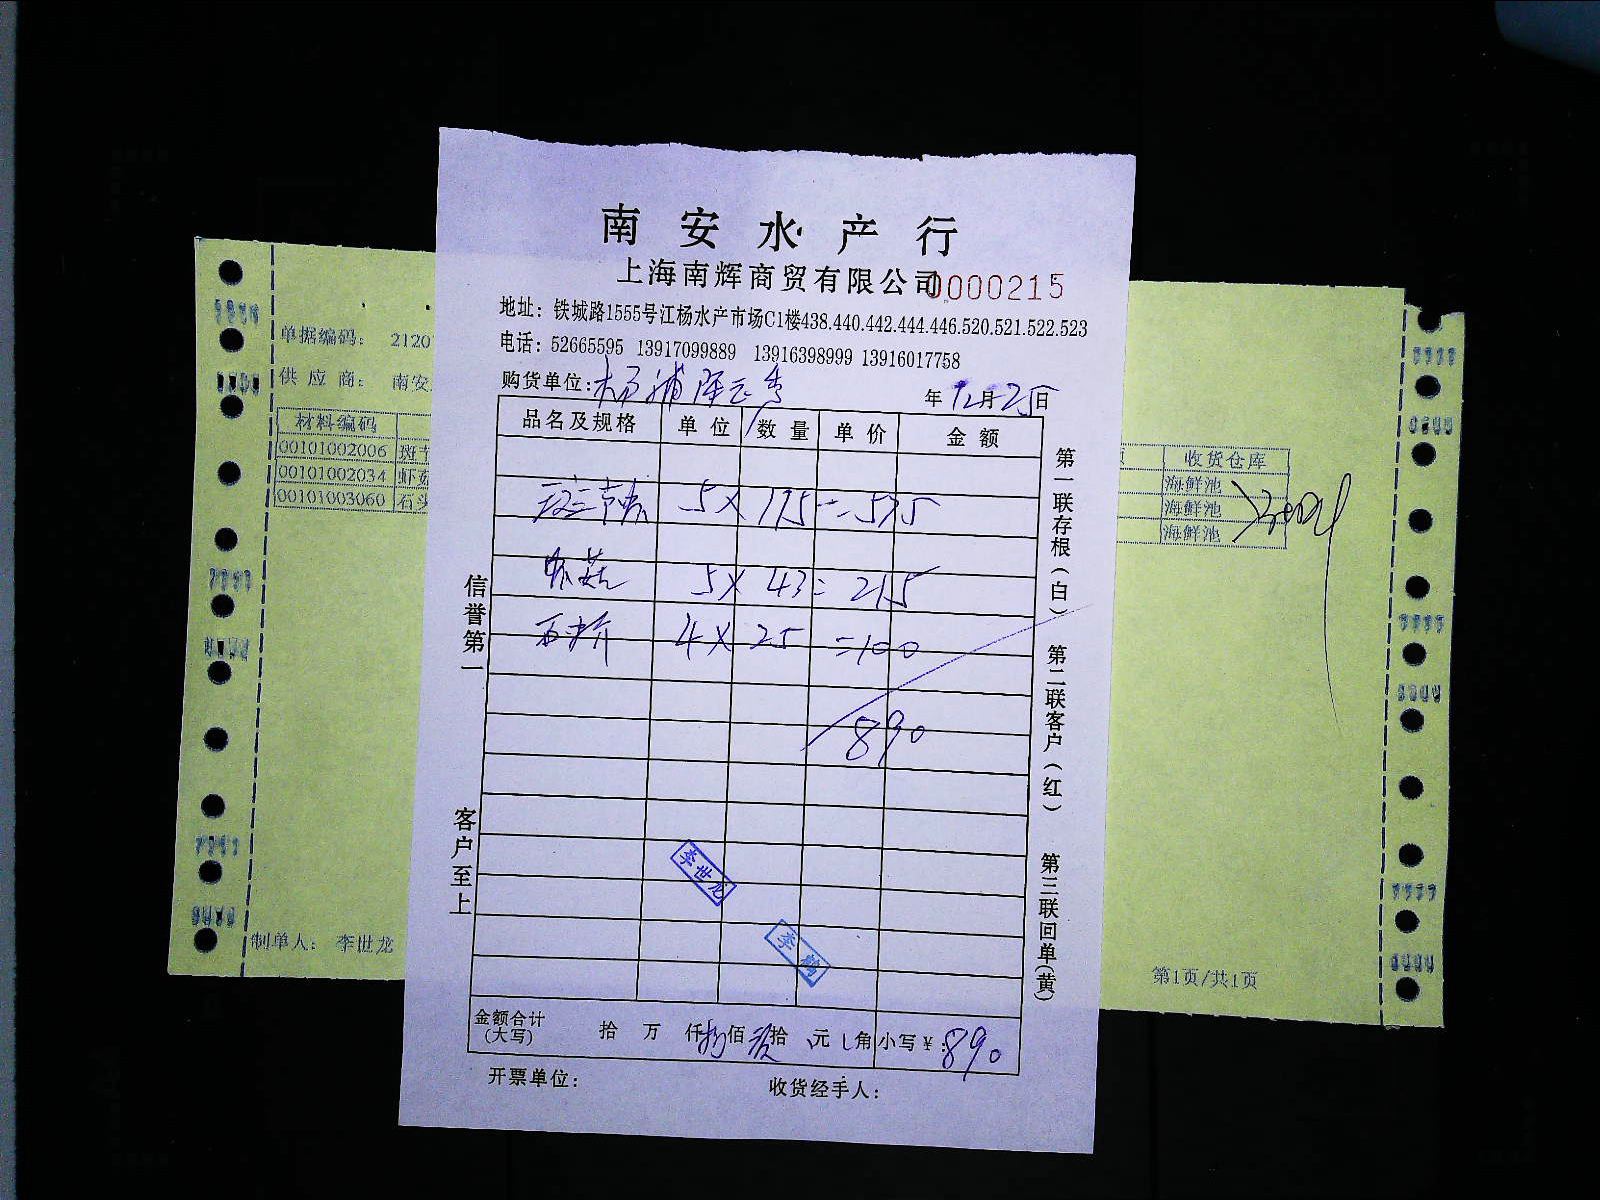 南安水产行
上海南辉商贸有限公司 0000215
地址：铁城路1555号江杨水产市场C1楼438.440.442.444.446.520.521.522.523
电话：52665595 13917099889 13916398999 13916017758
购货单位：杨浦 年12月25日
品名及规格 单位 数量 单价 金额
斑节虾 5×115=575
虾菇 5×43=215
4×25=100
890
李世龙
李鹤
金额合计(大写) 拾 万 仟捌佰玖拾 元 角 小写￥：890
开票单位： 收货经手人：
信誉第一
客户至上
第一联存根（白）
第二联客户（红）
第三联回单（黄）
单据编码： 2120
供应商： 南安
材料编码
00101002006 斑节
00101002034 虾菇
00101003060 石头
制单人： 李世龙
收货仓库
海鲜池
海鲜池
海鲜池
第1页/共1页